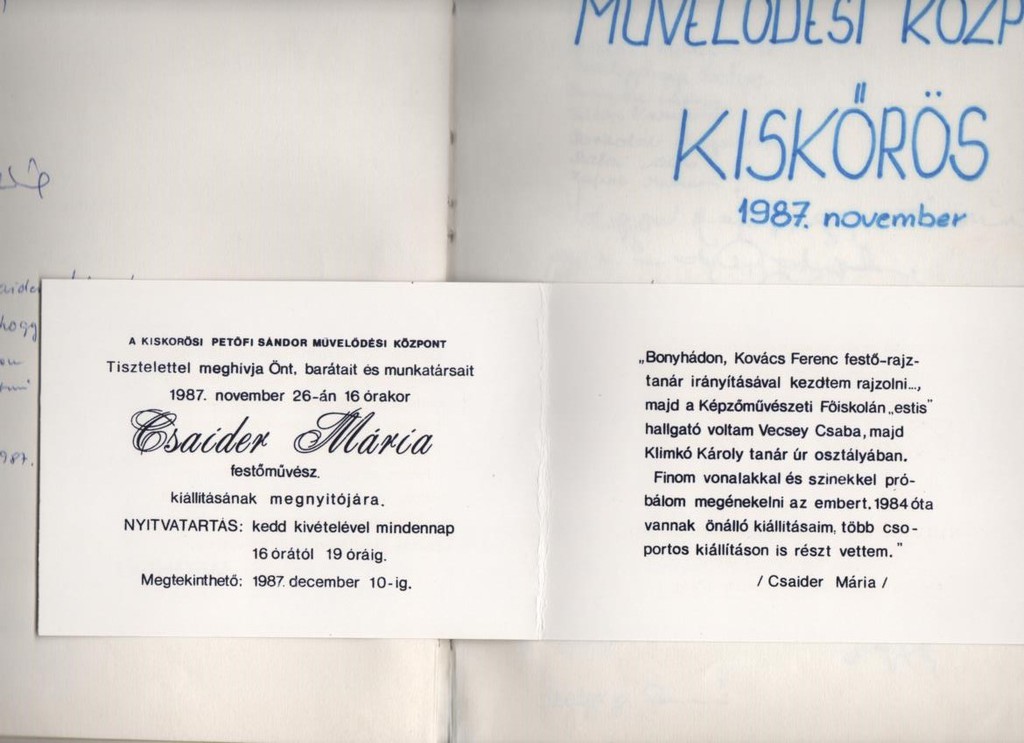 MŰVELŐDÉSI KÖZP
KISKŐRÖS
1987. november
A KISKŐRÖSI PETŐFI SÁNDOR MŰVELŐDÉSI KÖZPONT
Tisztelettel meghívja Önt, barátait és munkatársait
1987. november 26-án 16 órakor
Csaider Mária
festőművész.
kiállításának megnyitójára.
NYITVATARTÁS: kedd kivételével mindennap
16 órától 19 óráig.
Megtekinthető: 1987. december 10-ig.
„Bonyhádon, Kovács Ferenc festő-rajz-
tanár irányításával kezdtem rajzolni...,
majd a Képzőművészeti Főiskolán „estis"
hallgató voltam Vecsey Csaba, majd
Klimkó Károly tanár úr osztályában.
Finom vonalakkal és szinekkel pró-
bálom megénekelni az embert. 1984 óta
vannak önálló kiállításaim, több cso-
portos kiállításon is részt vettem."
/ Csaider Mária /